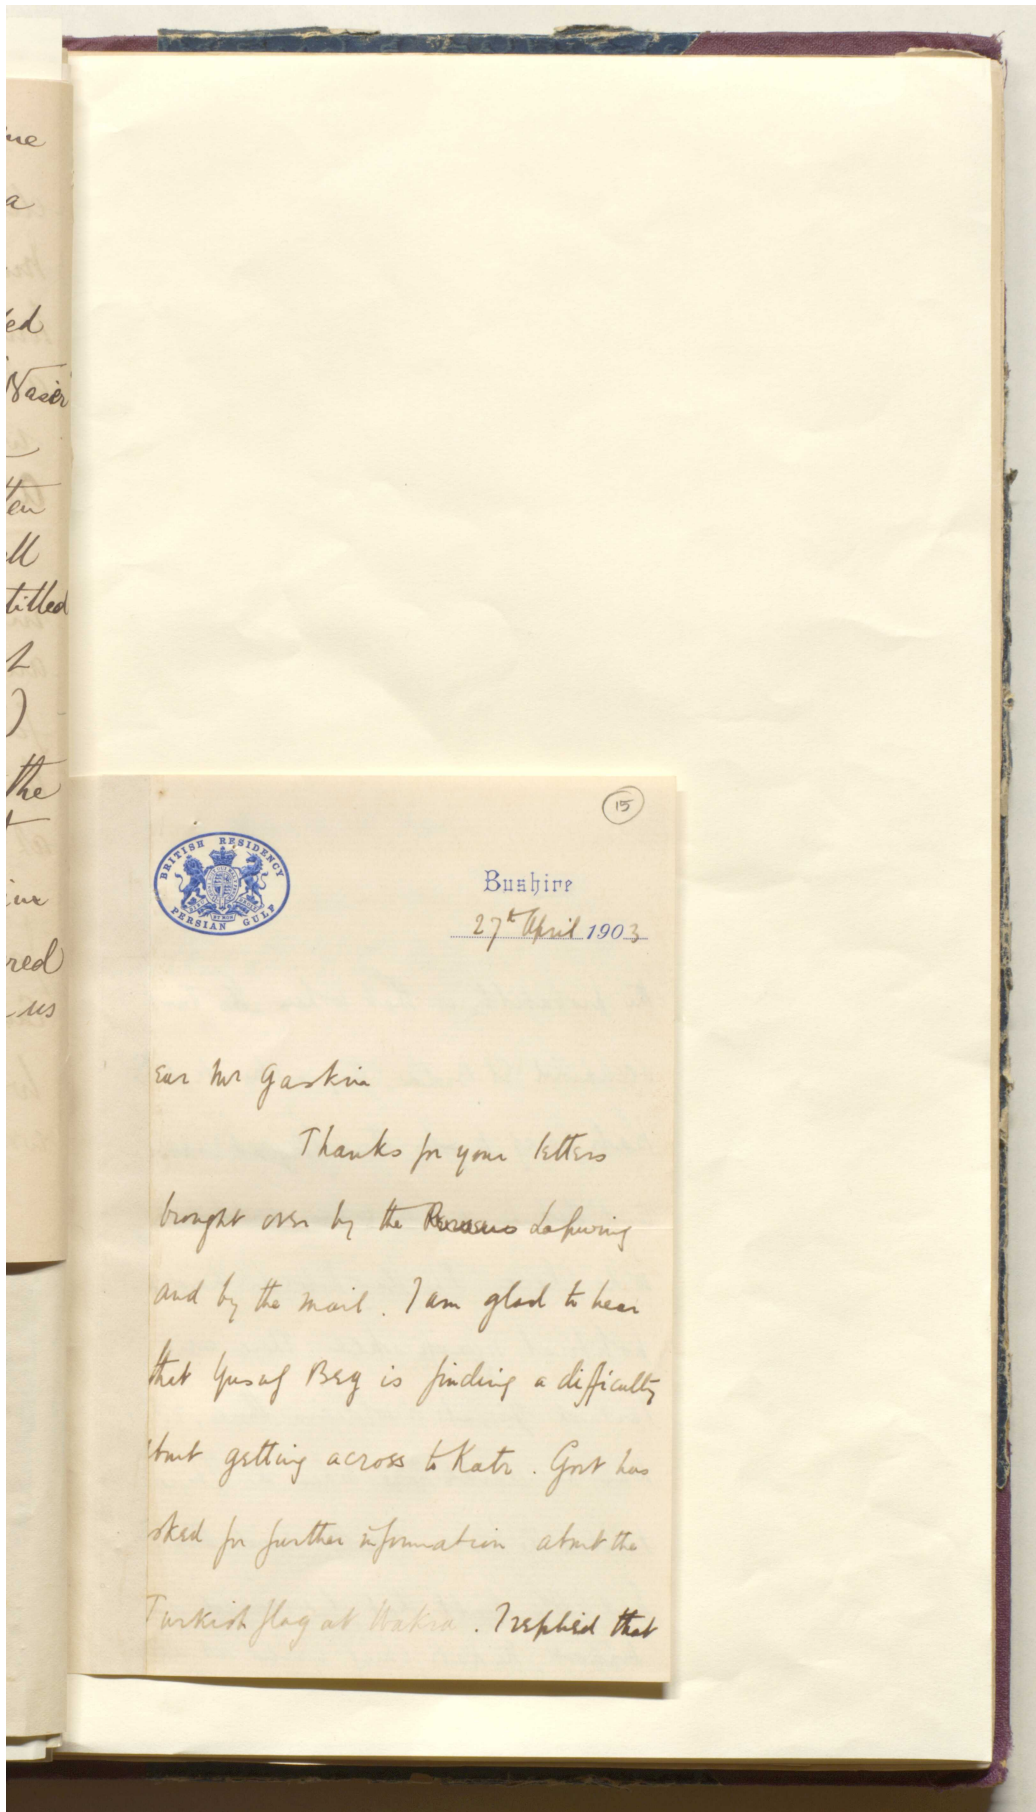 me
a
ed
Nasir
ten
ll
titled
the
red
us
15
BRITISH RESIDENCY
PERSIAN GULF
Bushire
27th April 1903
ear Mr Gaskin
Thanks for your letters
brought over by the Lapwing
and by the mail. I am glad to hear
that Yusuf Beg is finding a difficulty
about getting across to Katr. Govt has
sked for further information about the
Turkish flag at Wakra. I replied that